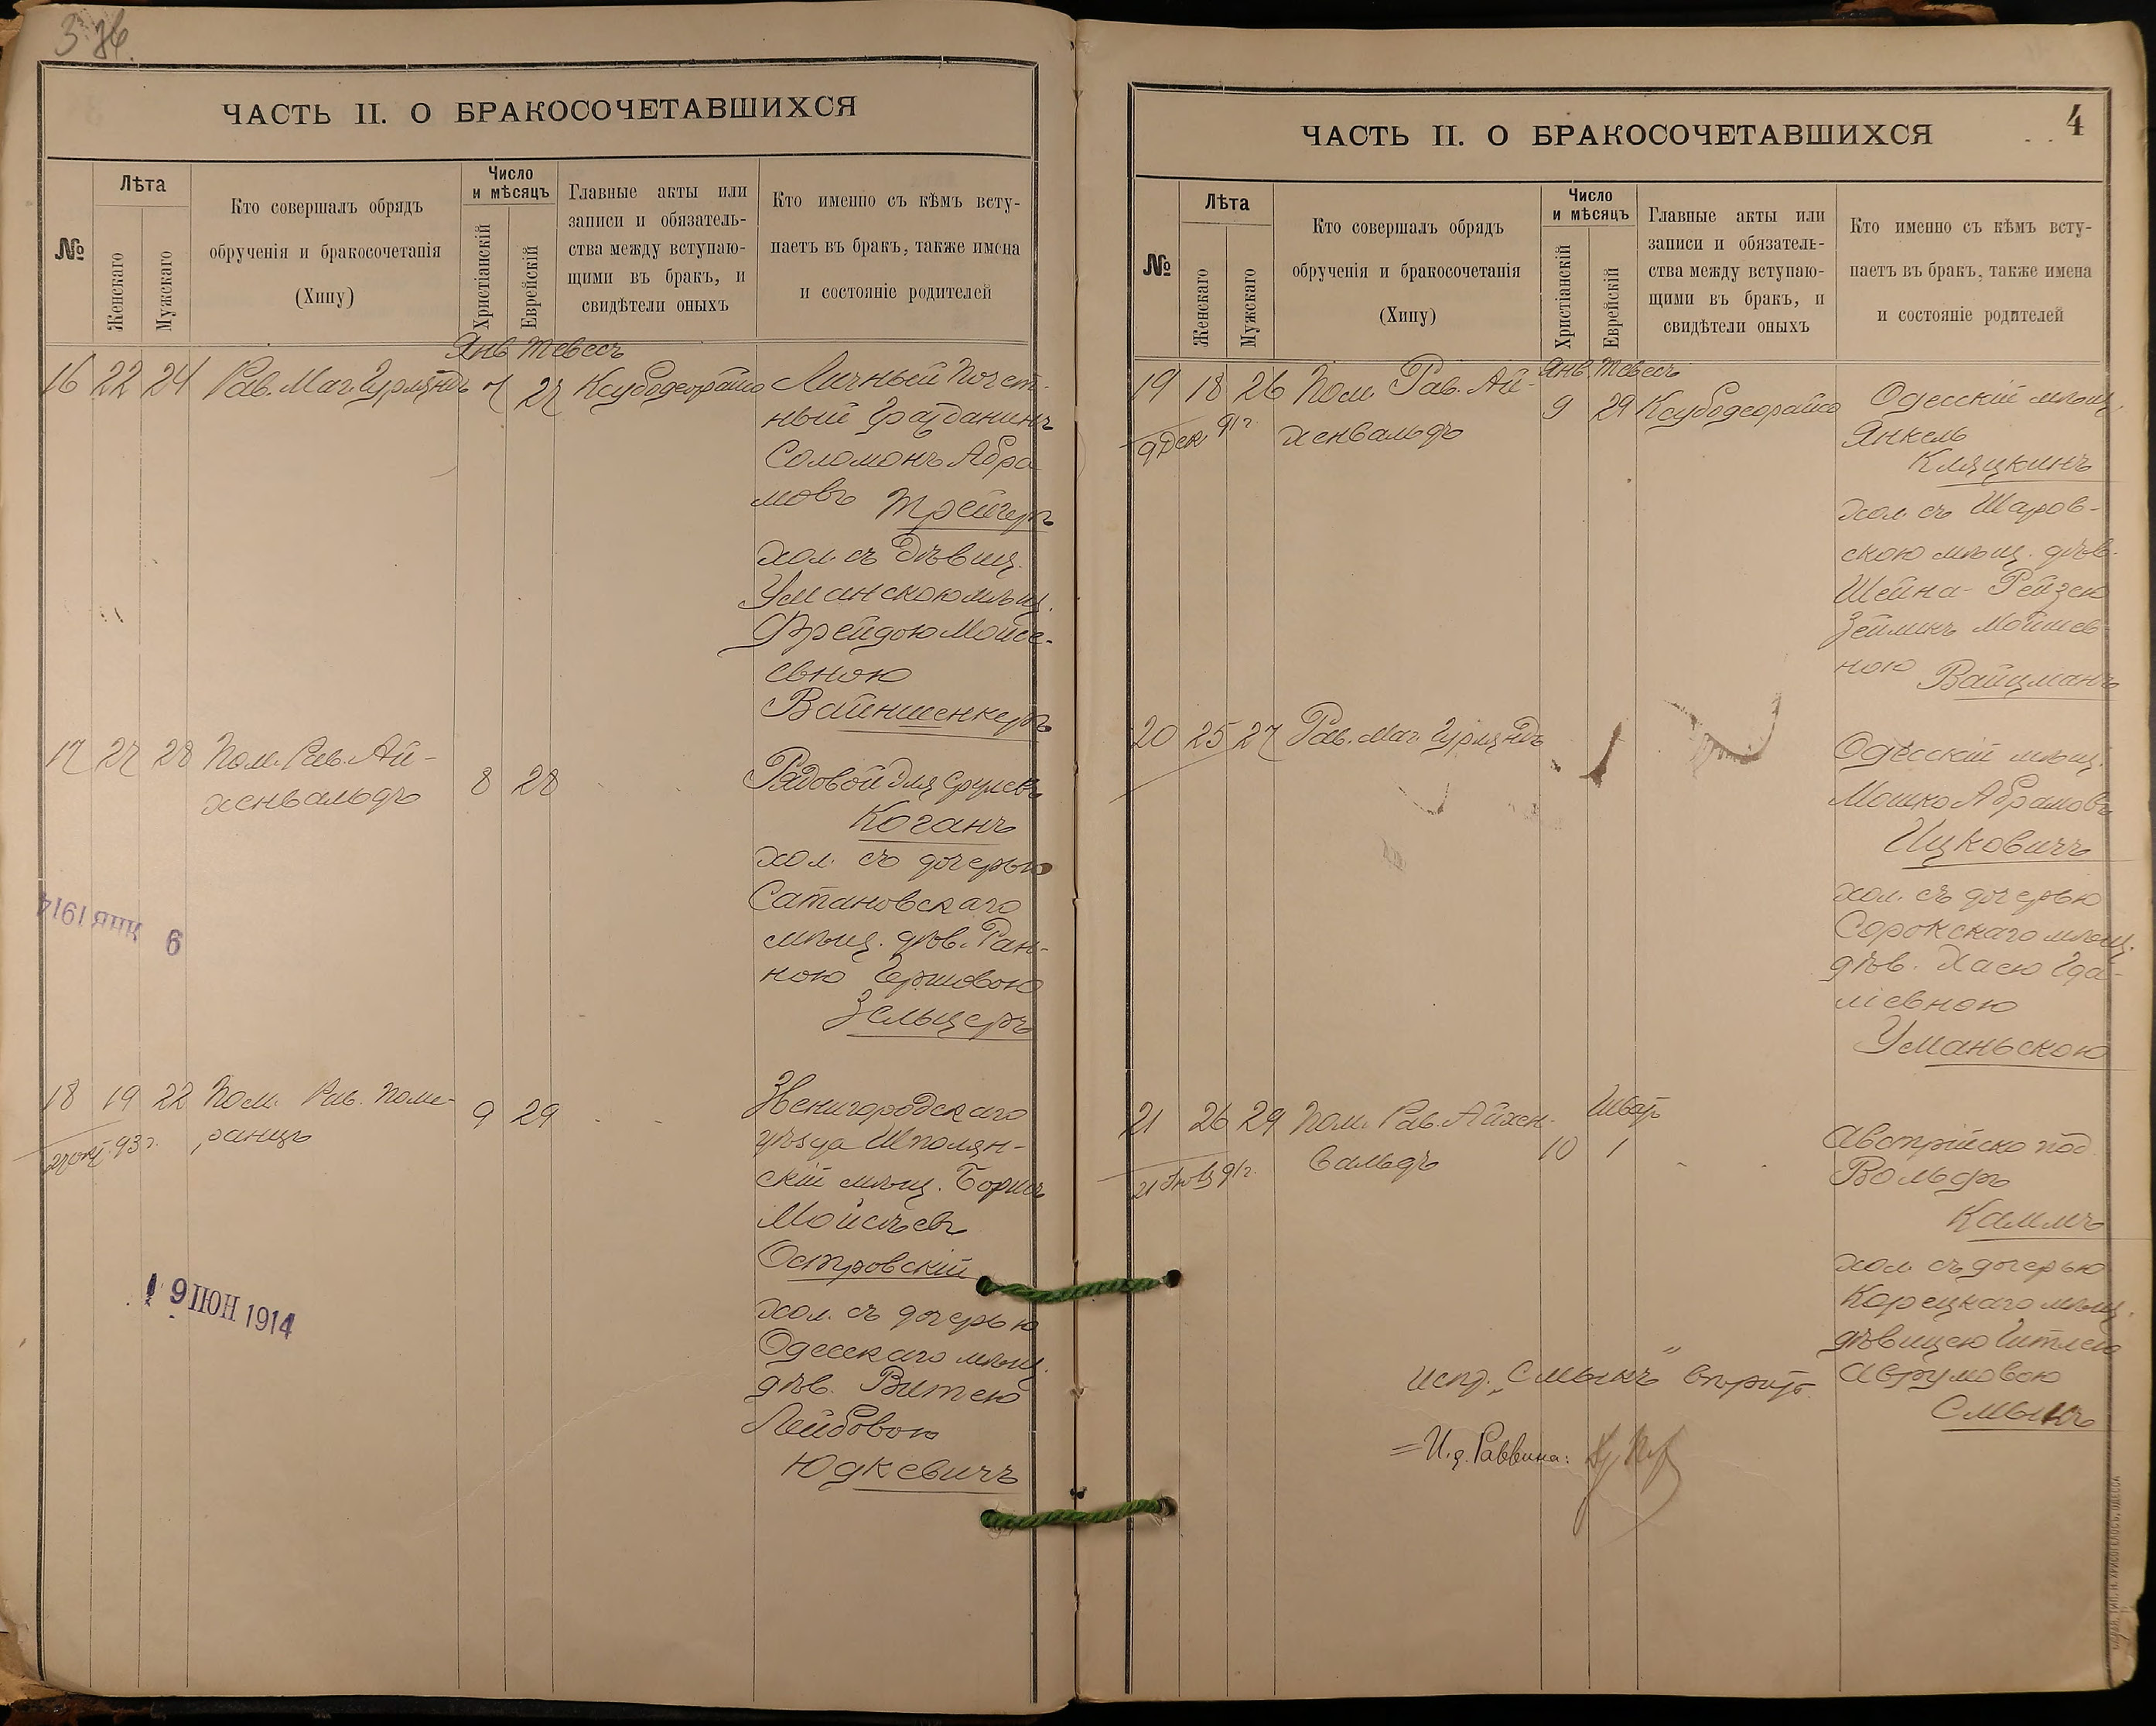 ЧАСТЬ II. О БРАКОСОЧЕТАВШИХСЯ
№
Лѣта
Женскаго
Мужскаго
Кто совершалъ обрядъ
обрученія и бракосочетанія
(Хипу)
Число
и мѣсяцъ
Христіанскій
Еврейскій
Главные акты или
записи и обязатель-
ства между вступаю-
щими въ бракъ, и
свидѣтели оныхъ
Кто именно съ кѣмъ всту-
паетъ въ бракъ, также имена
и состояніе родителей
Янв Тевесъ
16 22 24 Рав. Маг. Гурляндъ 7 27 Ксубодеорайсо
Личный Почет-
ный Гражданинъ
Соломонъ Абра
мовъ Трейгеръ
хол. съ дѣвиц.
Уманскою мѣщ.
Фрейдою Мойсе-
евною
Вайншенкеръ
17 27 28 Пом. Рав. Ай-
хенвальдъ
8 28
Рядовой
Коганъ
хол. съ дочерью
Сатановскаго
мѣщ. дѣв.
ною Гершовою
Зельцеръ
6 ЯНВ 1914
18 19 22 Пом. Рав. Поме-
ранцъ
9 29
Звенигородскаго
уѣзда Шполян-
скій мѣщ. Борисъ
Мойсѣевъ
Островскій
хол. съ дочерью
Одесскаго мѣщ.
дѣв. Витею
Лейбовою
Юдкевичъ
19 ІЮН 1914
ЧАСТЬ II. О БРАКОСОЧЕТАВШИХСЯ
4
№
Лѣта
Женскаго
Мужскаго
Кто совершалъ обрядъ
обрученія и бракосочетанія
(Хипу)
Число
и мѣсяцъ
Христіанскій
Еврейскій
Главные акты или
записи и обязатель-
ства между вступаю-
щими въ бракъ, и
свидѣтели оныхъ
Кто именно съ кѣмъ всту-
паетъ въ бракъ, также имена
и состояніе родителей
Янв. Тевесъ
19 18 26 Пом. Рав. Ай-
хенвальдъ
9 29 Ксубодеорайсо
9 дек 91 г.
Одесскій мѣщ.
Янкель
Кляцкинъ
хол. съ Шаров-
скою мѣщ. дѣв.
Шейна-Рейзею
Мошков
ною Вайцманъ
20 25 27 Рав. Маг. Гурляндъ
Одесскій мѣщ.
Мошко Абрамовъ
Ицковичъ
хол. съ дочерью
Сорокскаго мѣщ.
дѣв. Хаею Гда-
ліевною
Уманьскою
Шват
21 26 29 Пом. Рав. Айхен-
вальдъ
10 1
Австрійско под
Вольфъ
Каммъ
хол. съ дочерью
Корецкаго мѣщ.
дѣвицею Гитлею
Аврумовою
Смыкъ
Испр. „Смыкъ“ вѣрить.
И. д. Раввина: